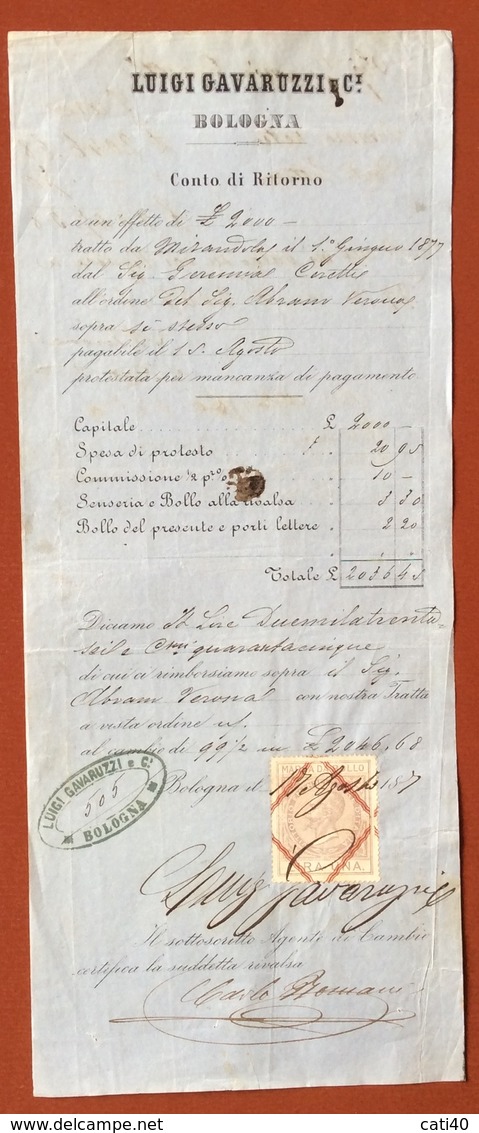 LUIGI GAVARUZZI E C.I
BOLOGNA
Conto di Ritorno
a un'effetto di £ 2000 —
tratto da Mirandola il 1° Giugno 1877
dal Sig. Geremia
all'ordine del Sig. Abram Verona
sopra sè stesso
pagabile il 15 Agosto
protestata per mancanza di pagamento
Capitale £ 2000 —
Spesa di protesto 20 95
Commissione 1/2 p. 10 —
Senseria e Bollo alla rivalsa 3 30
Bollo del presente e porti lettere 2 20
Totale £ 2036 45
Diciamo It Lire Duemilatrenta
sei e Cmi quarantacinque
di cui ci rimborsiamo sopra il Sig.
Abram Verona con nostra Tratta
a vista ordine
al cambio di 99 1/2 in £ 2046,68
Bologna il Agosto 187
MARCA DA BOLLO
LIRA UNA
LUIGI GAVARUZZI e C.I
505
BOLOGNA
Luigi Gavaruzzi
Il sottoscritto Agente di Cambio
certifica la suddetta rivalsa
Carlo Romani
cati40